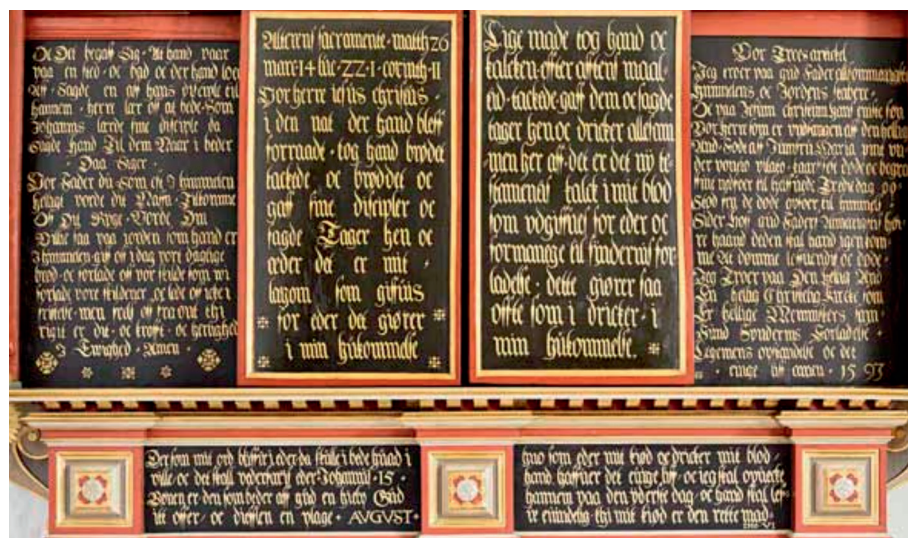 Oc Det begaff Sig · At hand vaar
paa en sted · oc bad oc der hand loed
Aff · Sagde en aff hans disciple til
hannem · herre lær oss at bede · Som
Johannes lærde sine disciple da
Sagde hand Til dem Naar i beder
Daa Siger ·
Vor Fader du Som est I himmelen
helligt vorde dit Naffn · Tilkomme
Oss Dit Rige · Vorde Din
Villie saa paa jorden som hand er
I himmelen giff oss i dag vore daglige
brød · oc forlade oss vor skyld som wi
forlade vore skyldener · oc lede oss icke i
fristelse · men frels oss fra ont thi
riget er dit · oc krafft · oc herlighed
I Ewighed · Amen ·
Alterens sacramente · matth 26
marc · 14 luc · 22 · 1 · corinth · 11
Vor herre iesus christus ·
i den nat der hand bleff
forraade · tog hand brødet
tackede · oc brøddet oc
gaff sine discipler oc
sagde Tager hen oc
æder det er mit ·
lagom · som giffus
for eder det giører
i min hukommelse
Lige made tog hand oc
kalcken effter afftens maal-
tid · tackede · gaff dem oc sagde
tager hen oc dricker alle sam-
men her aff · det er det ny te-
stamentis kalck i mit blod
som vdgiffuis for eder oc
for mange til syndernis for-
ladelse · dette giører saa
offte som i dricker · i
min hukommelse ·
Vor Troes artickel
Jeg troer paa gud Fader
himmelens oc Jordens skabere ·
Oc paa Jesum christum hans eniste søn
Vor herre som er vndfangen aff den hellig
Aand · Føde aff Jumfru Maria pint vn-
der poncio pilato · kaars fest døde oc begraffuen
nedfoer til helffuede Tredie dag op-
stod fra de døde opfoer til himmels
Sider hos gud Faders Almectigis høy-
re haand deden skal hand igen kom-
me At dømme leffuende oc døde ·
Jeg Troer paa Den hellig And
En hellig Christelig kircke som
Er hellige Menniskers Sam-
Fund Synderns Forladelse ·
Legemens opstandelse oc det
euige liff amen · 1593
Der som mit ord bliffuer i eder da skulle i bede huad i
ville oc det skall vederfaris eder · Johannis · 15 ·
Bønen er den som beder aff gud en hielp Gud
itt offer · oc dieffelen en plage · AVGVST ·
huo som eder mit kiød oc dricker mit blod ·
hand haffuer det euige liff · oc ieg skal opuecke
hannem paa den yderste dag · oc hand skal leff-
ue euindelig · thi mit kiød er den rette mad ·
VI